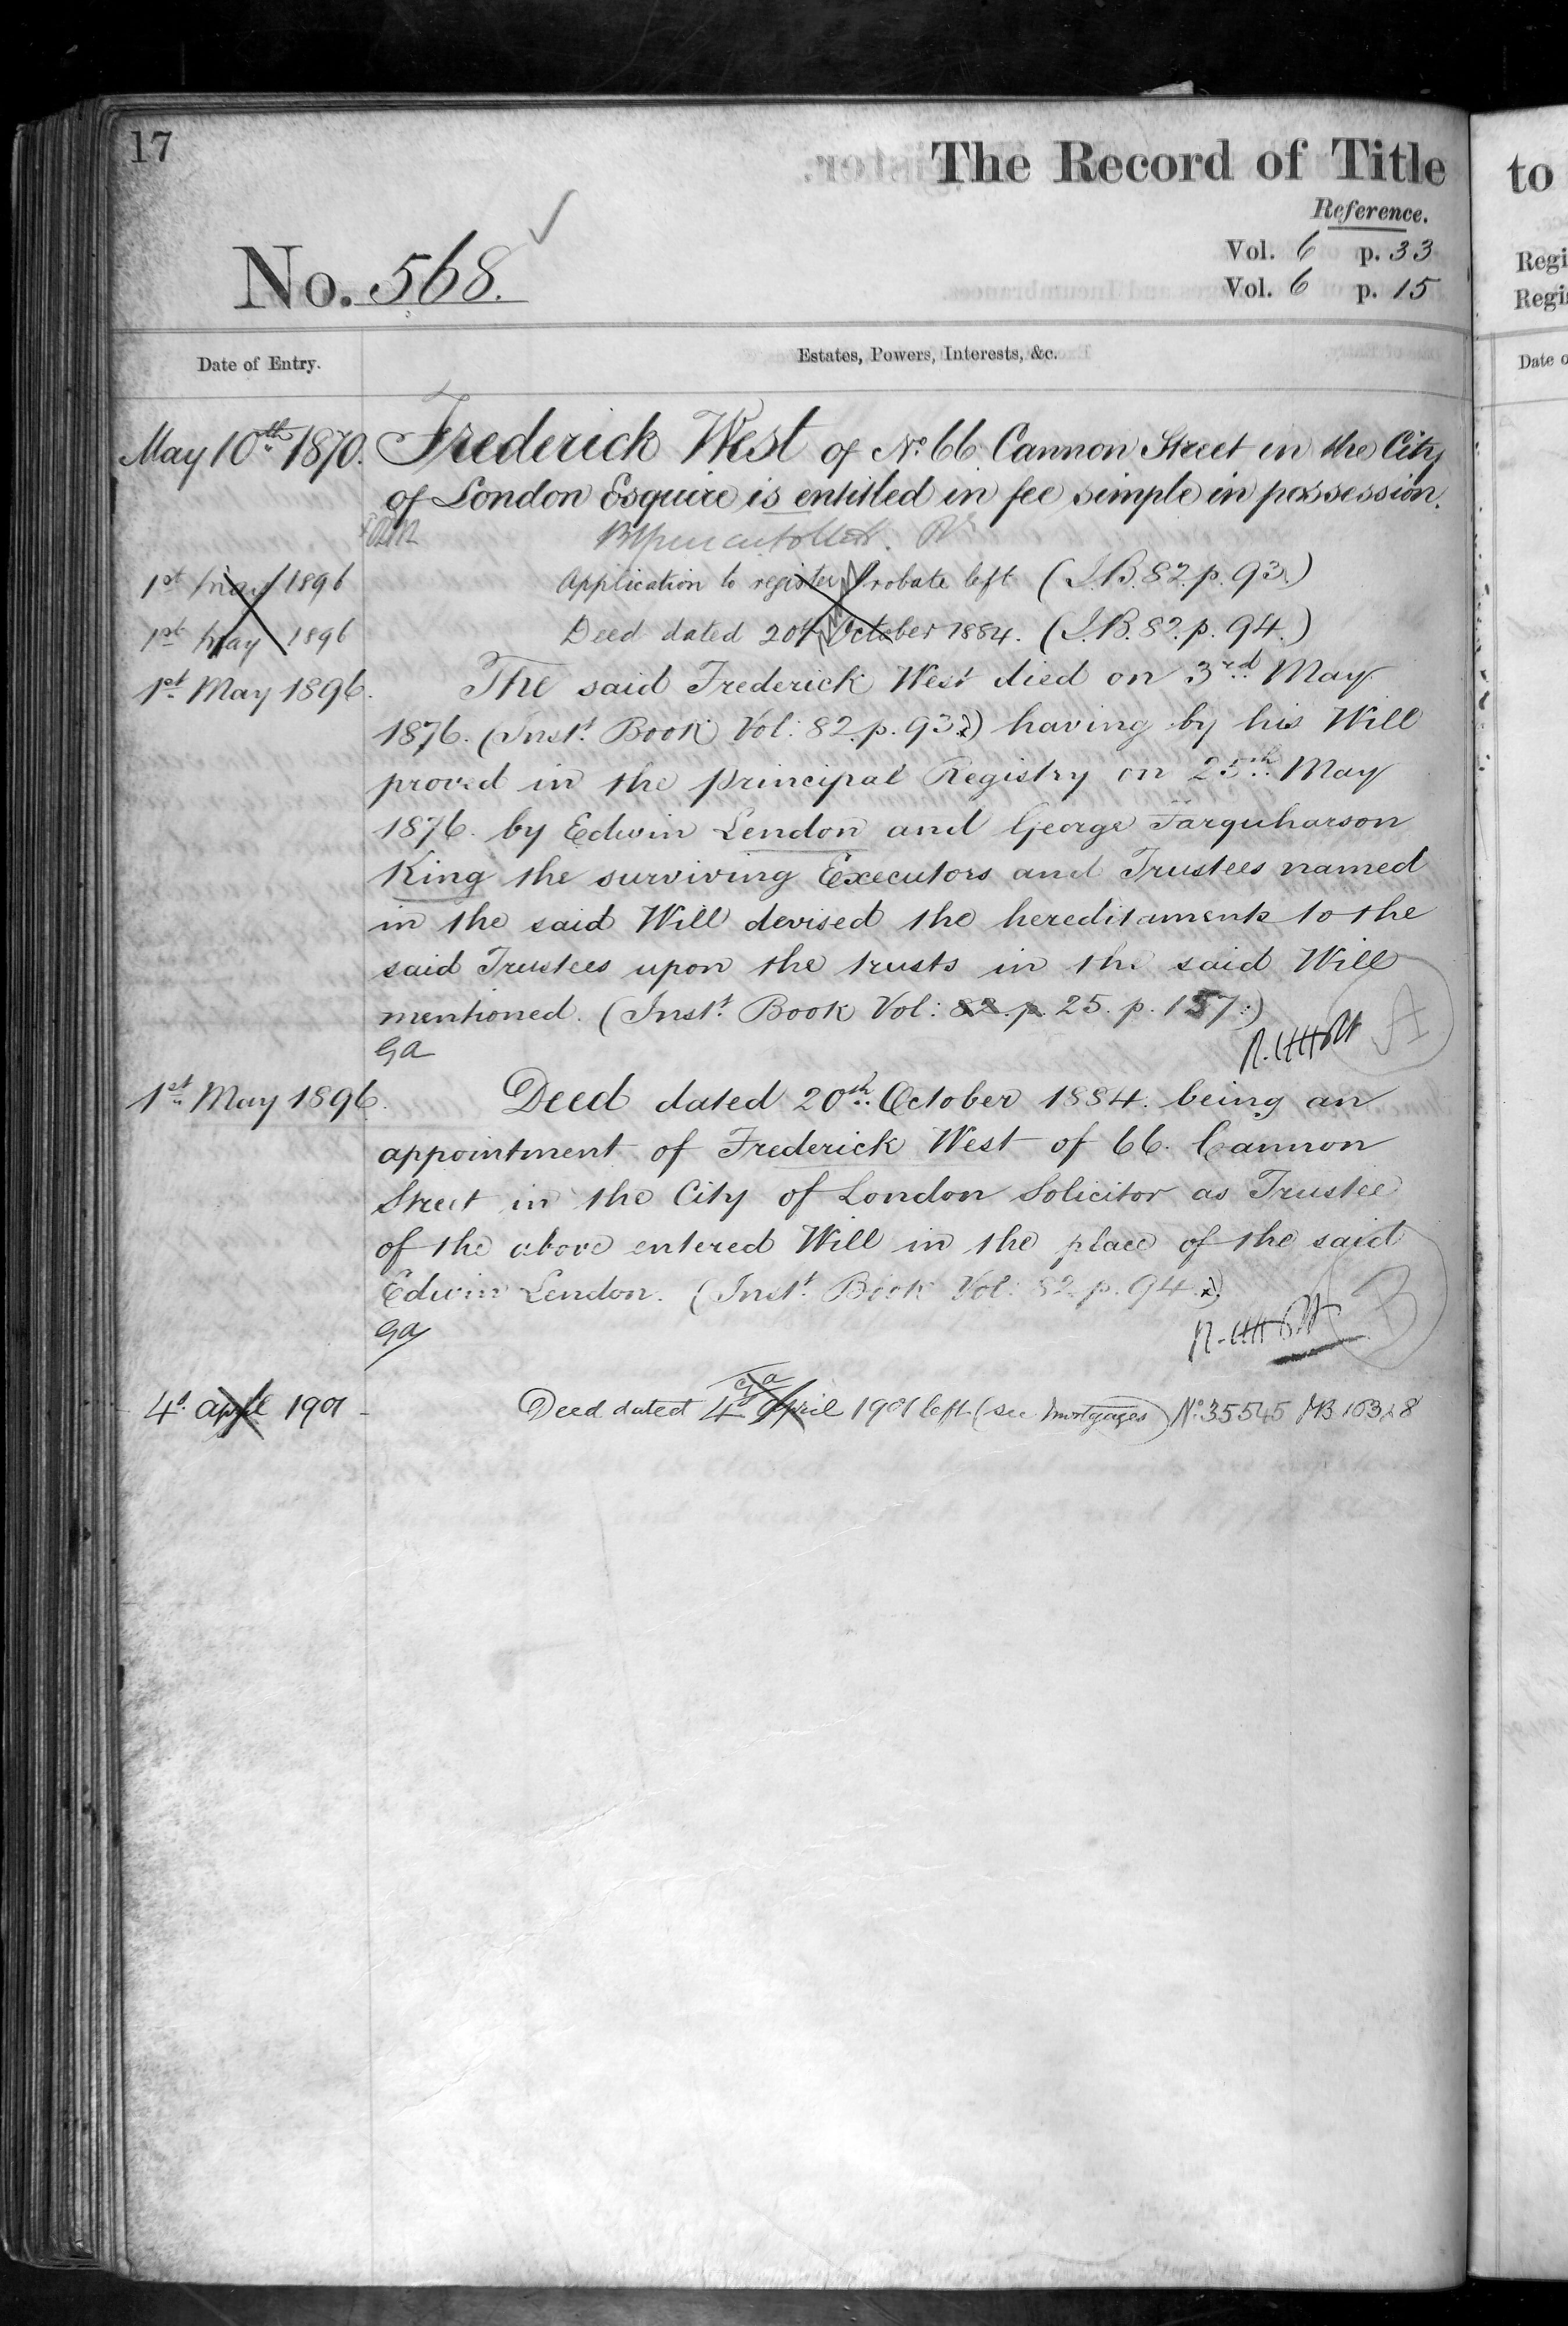 17
The Record of Title
Reference.
Vol. 6 p. 33
No. 568.
Vol. 6 p. 15
Date of Entry.
Estates, Powers, Interests, &c.
May 10th 1870. Frederick West of No. 66 Cannon Street in the City
of London Esquire is entitled in fee simple in possession.
1st May 1896 Application to register Probate left (I.B. 82. p. 93.)
1st May 1896 Deed dated 20th October 1884. (I.B. 82. p. 94.)
1st May 1896. The said Frederick West died on 3rd May
1876. (Inst. Book Vol: 82. p. 93.) having by his Will
proved in the principal Registry on 25th May
1876. by Edwin Lendon and George Farquharson
King the surviving Executors and Trustees named
in the said Will devised the hereditaments to the
said Trustees upon the trusts in the said Will
mentioned. (Inst. Book Vol: 82. p. 25. p. 157.)
GA
A
1st May 1896. Deed dated 20th October 1884. being an
appointment of Frederick West of 66. Cannon
Street in the City of London Solicitor as Trustee
of the above entered Will in the place of the said
Edwin Lendon. (Inst. Book Vol: 82. p. 94.)
GA
B
Ga
4th April 1901 Deed dated 4th April 1901 left (see Mortgages) No. 35545
to
Regi
Regi
Date o